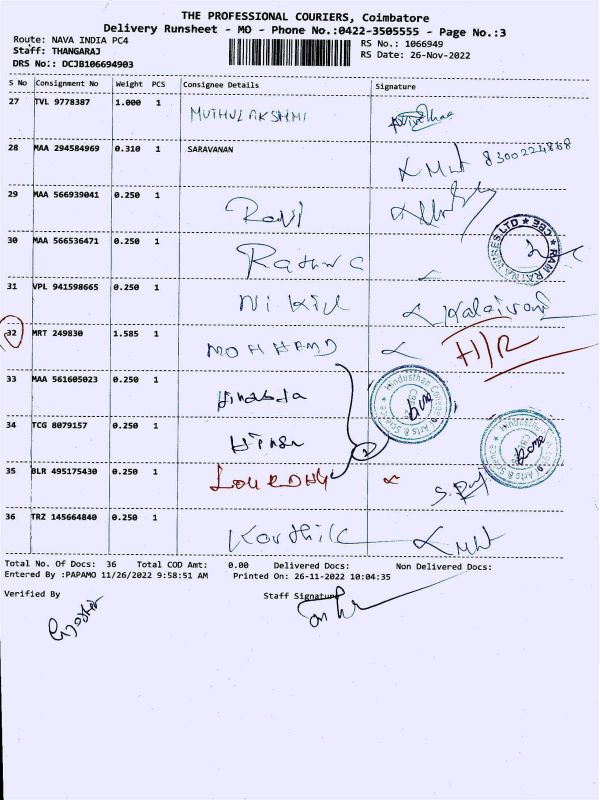 THE PROFESSIONAL COURIERS, Coimbatore
Delivery Runsheet - MO - Phone No.:0422-3505555 - Page No.:3
Route: NAVA INDIA PC4
RS No.: 1066949
Staff: THANGARAJ
RS Date: 26-Nov-2022
DRS No:: DCJB106694903
S No Consignment No Weight PCS Consignee Details Signature
27 TVL 9778387 1.000 1 MUTHULAKSHMI
28 MAA 294584969 0.310 1 SARAVANAN 8300224868
29 MAA 566939041 0.250 1 Ravi
30 MAA 566536471 0.250 1 Rathna C
RAM RATNA WIRES LTD ★ CBE ★
31 VPL 941598665 0.250 1 Nikil Kalaivani
32 MRT 249830 1.585 1 MOHHEMD H/R
33 MAA 561605023 0.250 1
Hindusthan College of Arts & Science
34 TCG 8079157 0.250 1
Arts & Science
35 BLR 495175430 0.250 1 LOURDHU
36 TRZ 145664840 0.250 1 Karthik
Total No. Of Docs: 36 Total COD Amt: 0.00 Delivered Docs: Non Delivered Docs:
Entered By :PAPAMO 11/26/2022 9:58:51 AM Printed On: 26-11-2022 10:04:35
Verified By Staff Signature